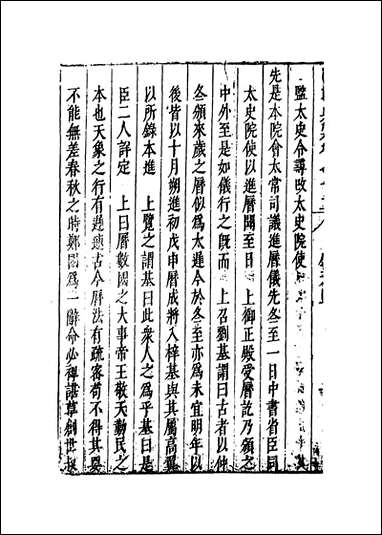 監太史令尋改太史院使
先是本院會太常司議進曆儀先冬至一日中書省臣同
太史院使以進曆聞至日 上御正殿受曆訖乃頒之
中外至是如儀行之旣而 上召劉基謂曰古者以仲
冬頒來歲之曆似爲太遲今於冬至亦爲未宜明年以
後皆以十月朔進初戊申曆成將入梓基與其屬高翼
以所錄本進 上覽之謂基曰此衆人之爲乎基曰是
臣二人詳定 上曰曆數國之大事帝王敬天勤民之
本也天象之行有遲速古今曆法有疏密苟不得其要
不能無差春秋之時鄭國爲一辭命必裨諶草創世叔